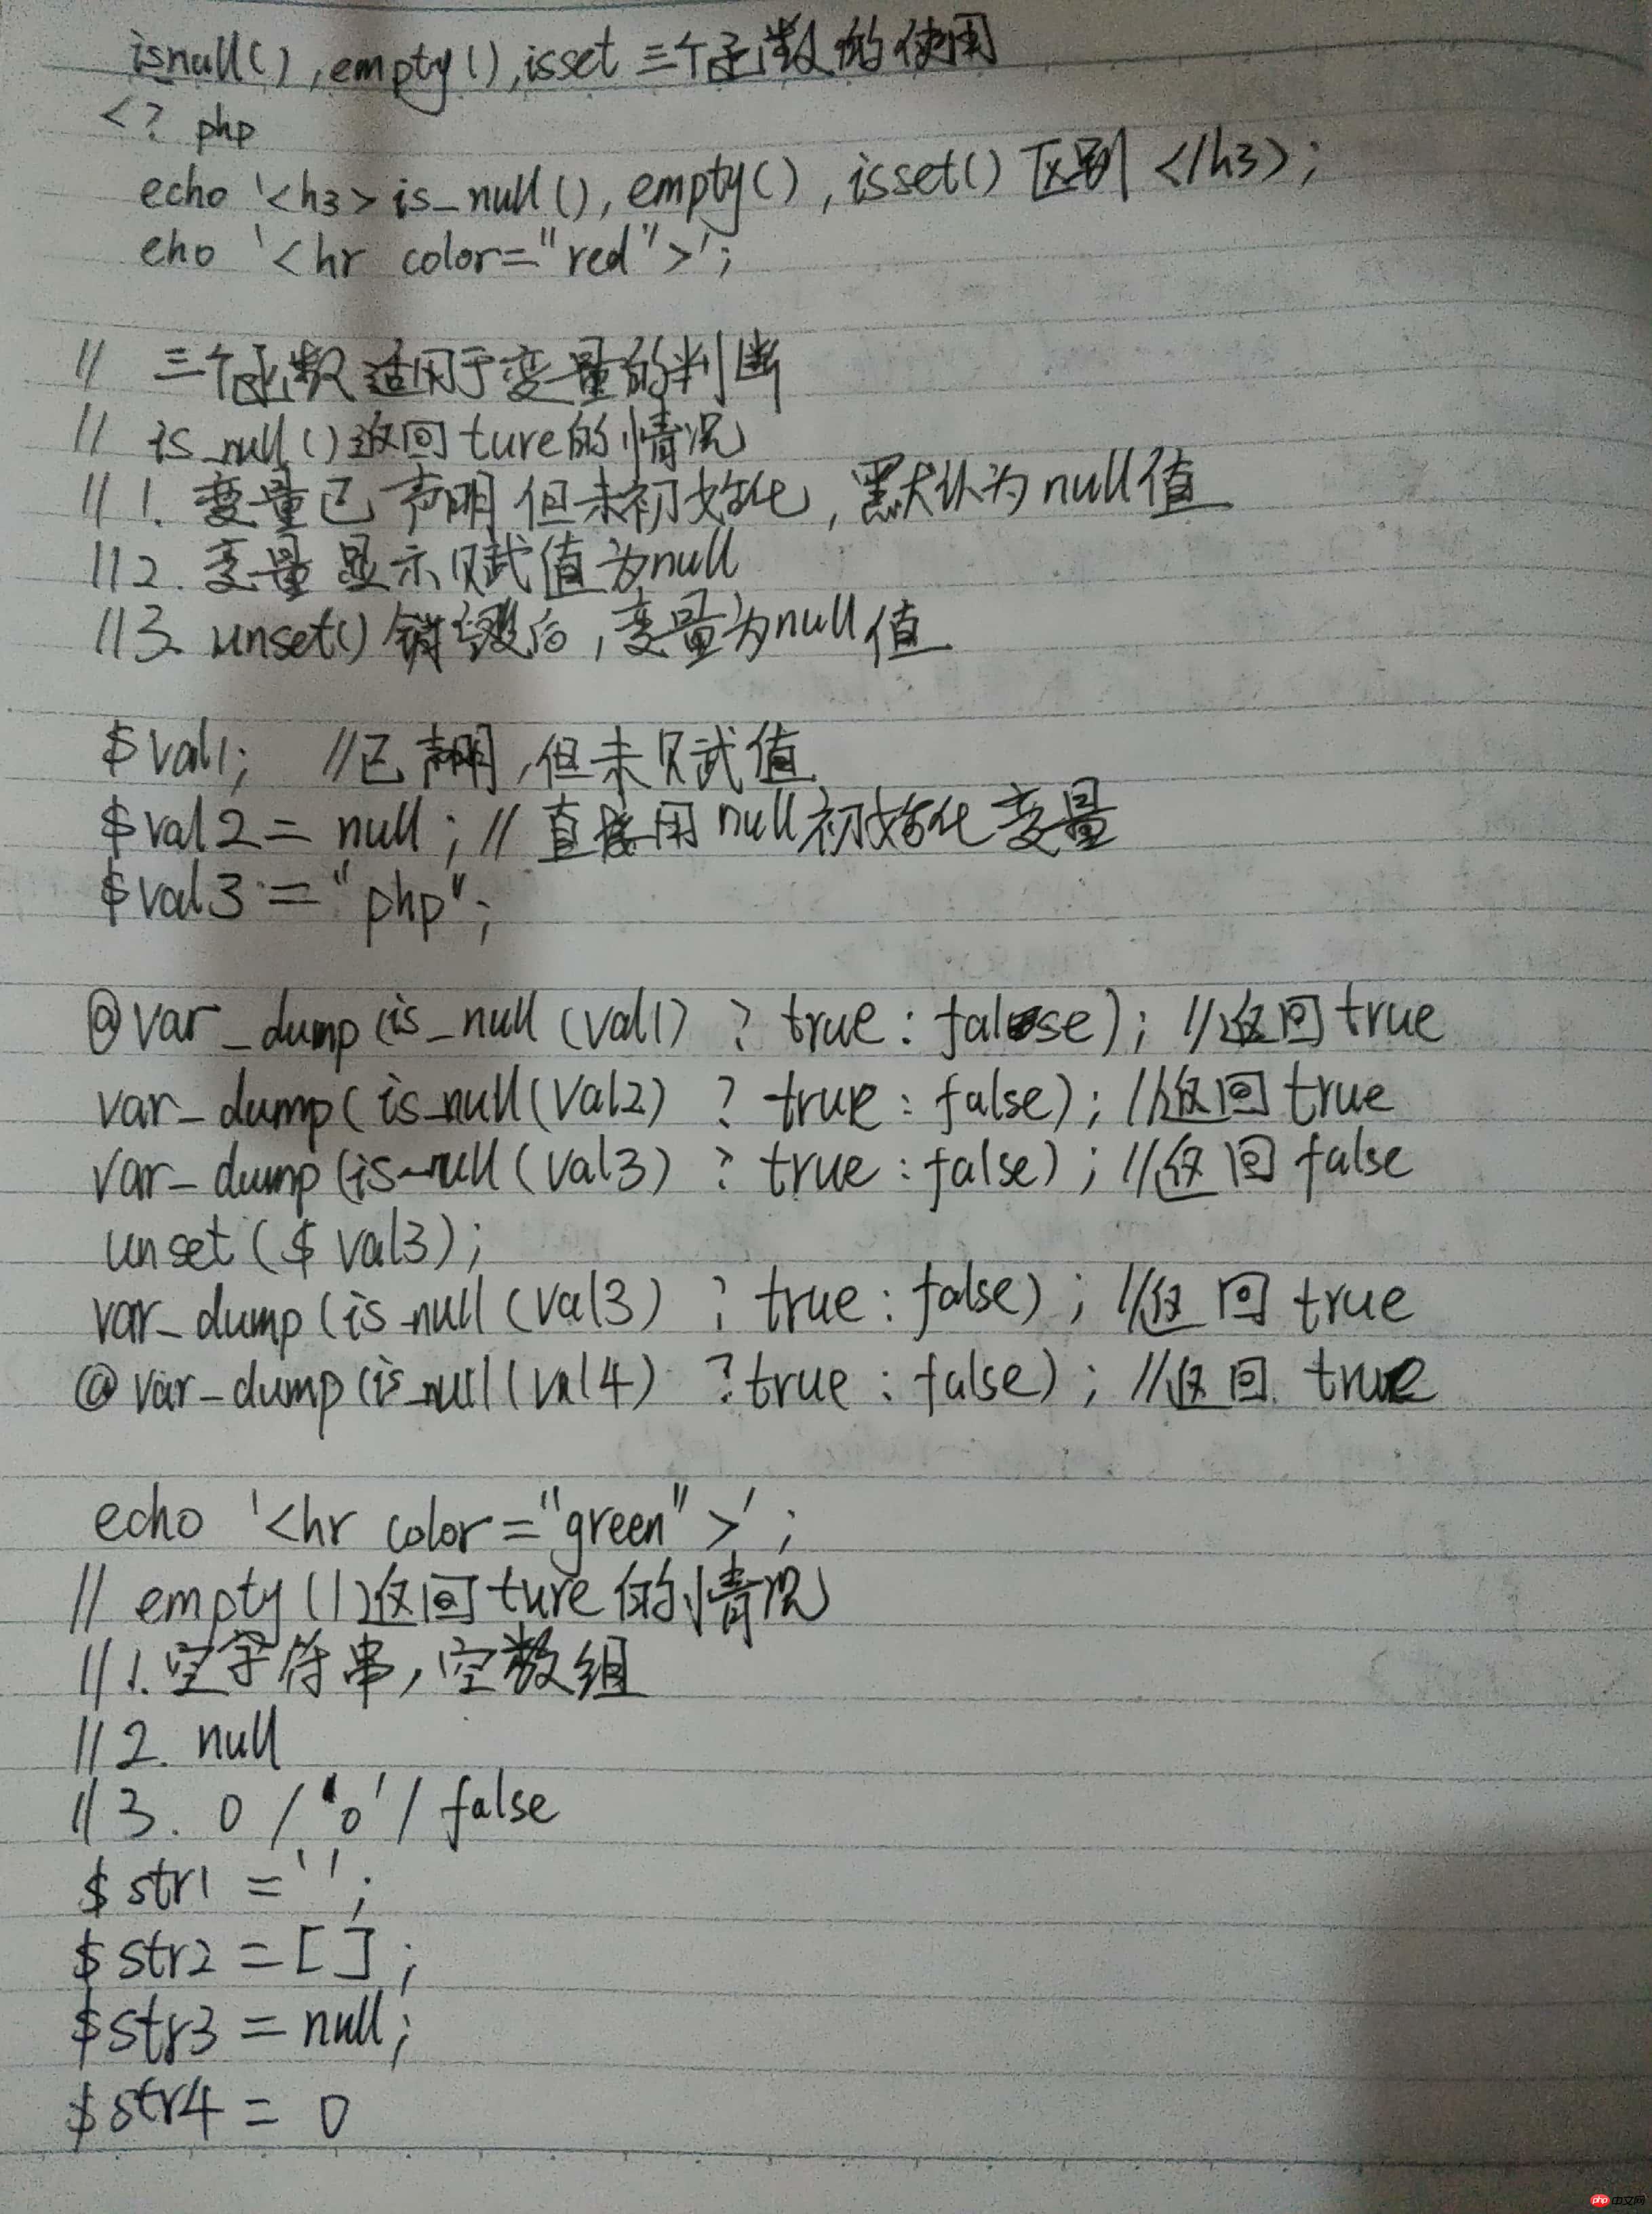 isnull(),empty(),isset 三个函数的使用
<? php
echo '<h3>is_null(), empty(), isset() 区别 </h3>;
eho '<hr color="red">';
// 三个函数适用于变量的判断
// is_null()返回ture的情况
// 1. 变量已声明但未初始化,默认为null值
//2. 变量显示赋值为null
//3. unset()销毁后,变量为null值
$val1; //已声明,但未赋值
$val2 = null; // 直接用null初始化变量
$val3 = "php";
@var_dump(is_null(val1) ? true : false); //返回true
var_dump(is_null(val2) ? true : false); //返回 true
var_dump(is_null(val3) ? true : false); //返回 false
unset($val3);
var_dump(is_null(val3) ? true : false); //返回 true
@var_dump(is_null(val4) ? true : false); //返回 true
echo '<hr color="green">';
// empty()返回ture的情况
//1.空字符串,空数组
//2. null
//3. 0 / '0' / false
$str1 = '';
$str2 = [];
$str3 = null;
$str4 = 0
php 中文网